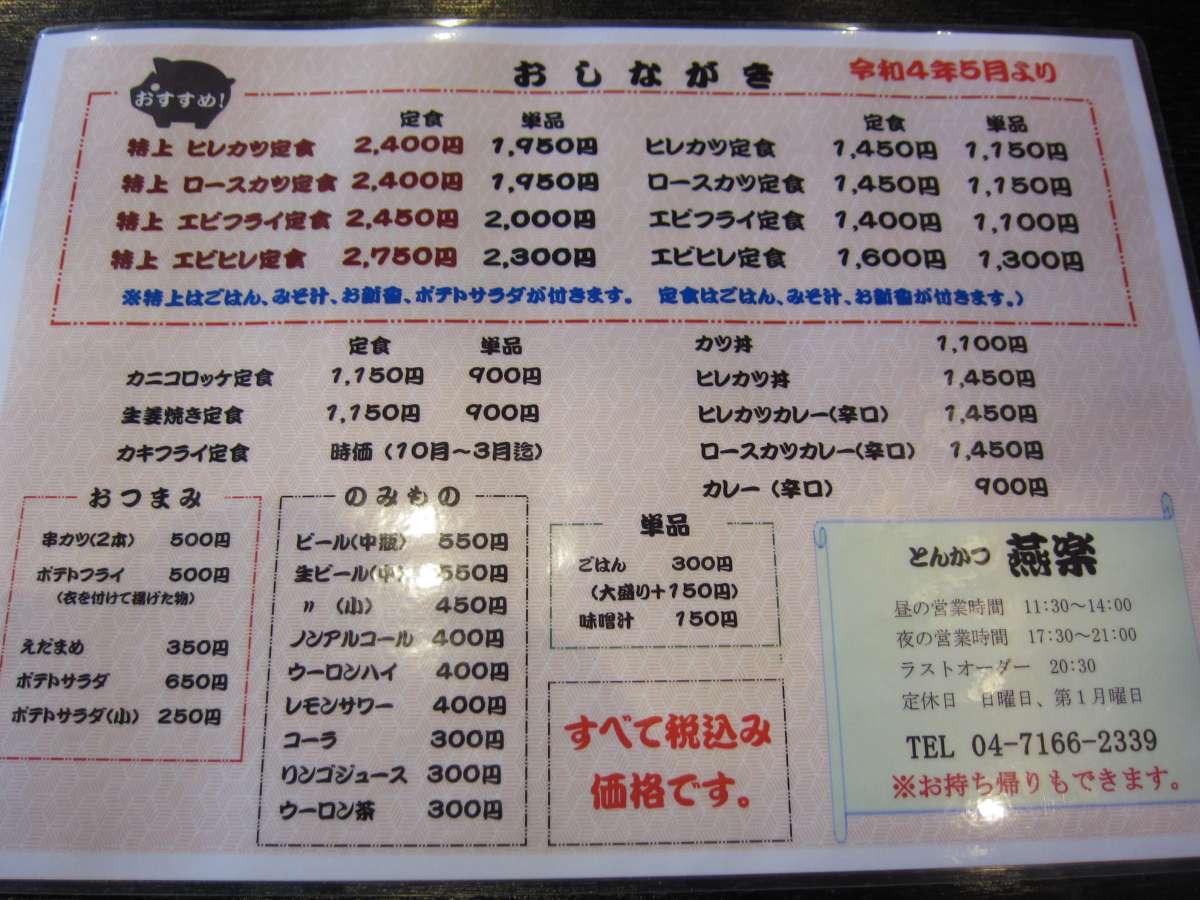 おしながき 令和4年5月より
おすすめ!
定食 単品
特上 ヒレカツ定食 2,400円 1,950円
特上 ロースカツ定食 2,400円 1,950円
特上 エビフライ定食 2,450円 2,000円
特上 エビヒレ定食 2,750円 2,300円
定食 単品
ヒレカツ定食 1,450円 1,150円
ロースカツ定食 1,450円 1,150円
エビフライ定食 1,400円 1,100円
エビヒレ定食 1,600円 1,300円
※特上はごはん、みそ汁、お新香、ポテトサラダが付きます。 定食はごはん、みそ汁、お新香が付きます。)
定食 単品
カニコロッケ定食 1,150円 900円
生姜焼き定食 1,150円 900円
カキフライ定食 時価(10月～3月迄)
カツ丼 1,100円
ヒレカツ丼 1,450円
ヒレカツカレー(辛口) 1,450円
ロースカツカレー(辛口) 1,450円
カレー(辛口) 900円
おつまみ
串カツ(2本) 500円
ポテトフライ 500円
(衣を付けて揚げた物)
えだまめ 350円
ポテトサラダ 650円
ポテトサラダ(小) 250円
のみもの
ビール(中瓶) 550円
生ビール(中) 550円
〃 (小) 450円
ノンアルコール 400円
ウーロンハイ 400円
レモンサワー 400円
コーラ 300円
リンゴジュース 300円
ウーロン茶 300円
単品
ごはん 300円
(大盛り+150円)
味噌汁 150円
すべて税込み
価格です。
とんかつ 燕楽
昼の営業時間 11:30～14:00
夜の営業時間 17:30～21:00
ラストオーダー 20:30
定休日 日曜日、第1月曜日
TEL 04-7166-2339
※お持ち帰りもできます。